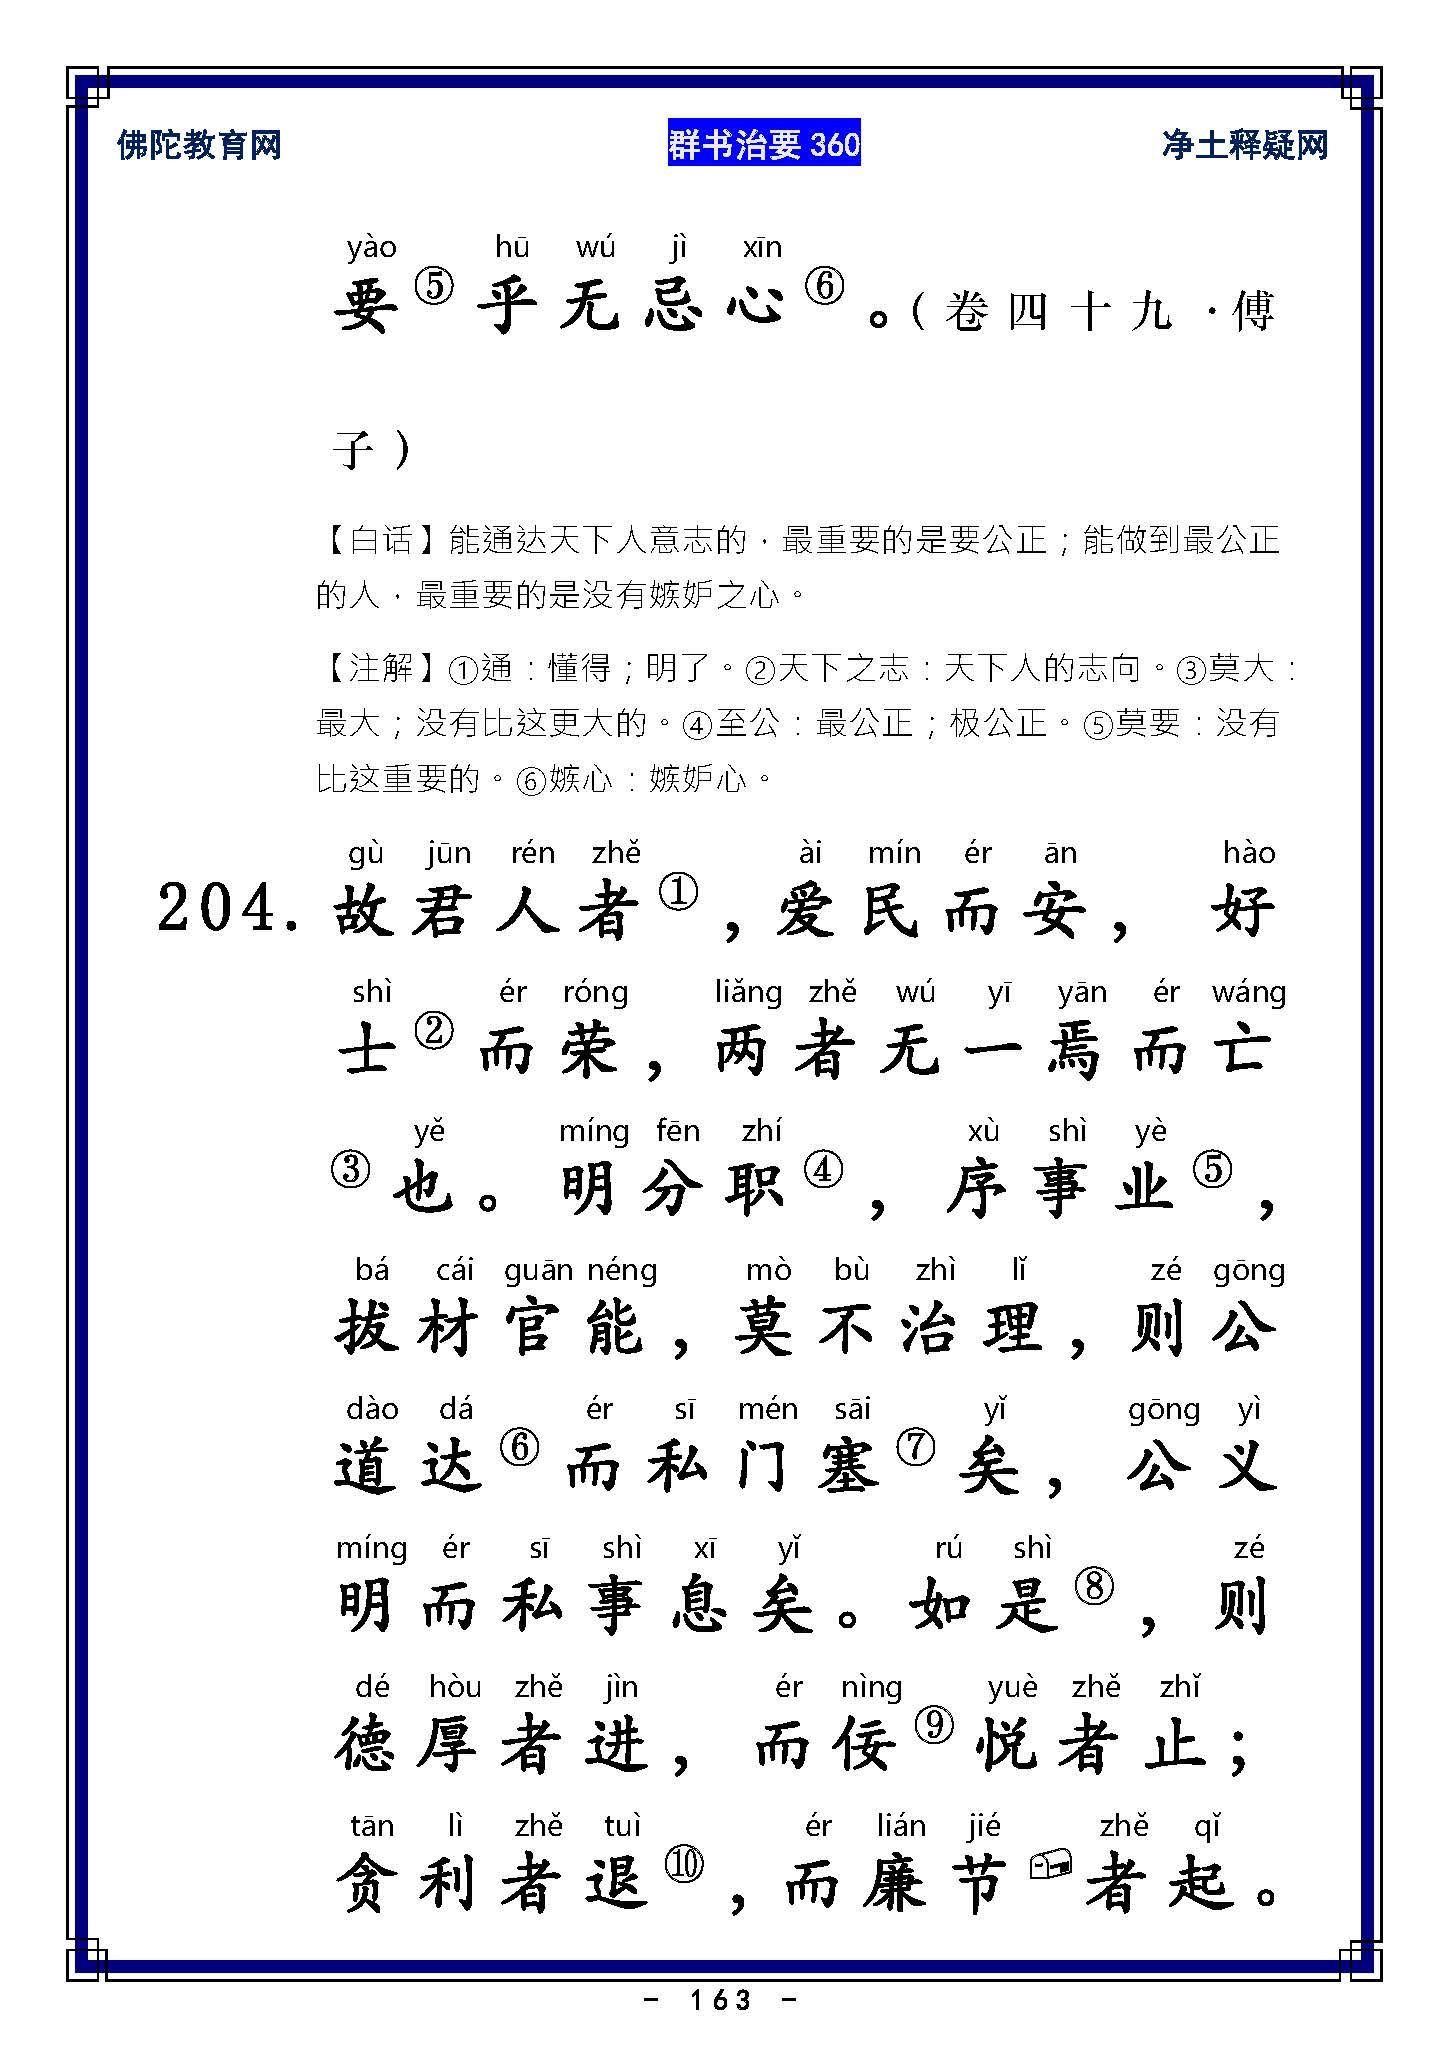 佛陀教育网 群书治要360 净土释疑网
yào hū wú jì xīn
要⑤乎无忌心⑥。(卷四十九·傅
子)
【白话】能通达天下人意志的，最重要的是要公正；能做到最公正
的人，最重要的是没有嫉妒之心。
【注解】①通：懂得；明了。②天下之志：天下人的志向。③莫大：
最大；没有比这更大的。④至公：最公正；极公正。⑤莫要：没有
比这重要的。⑥嫉心：嫉妒心。
gù jūn rén zhě ài mín ér ān hào
204. 故君人者①，爱民而安，好
shì ér róng liǎng zhě wú yī yān ér wáng
士②而荣，两者无一焉而亡
yě míng fēn zhí xù shì yè
③也。明分职④，序事业⑤，
bá cái guān néng mò bù zhì lǐ zé gōng
拔材官能，莫不治理，则公
dào dá ér sī mén sāi yǐ gōng yì
道达⑥而私门塞⑦矣，公义
míng ér sī shì xī yǐ rú shì zé
明而私事息矣。如是⑧，则
dé hòu zhě jìn ér nìng yuè zhě zhǐ
德厚者进，而佞⑨悦者止；
tān lì zhě tuì ér lián jié zhě qǐ
贪利者退⑩，而廉节者起。
- 163 -